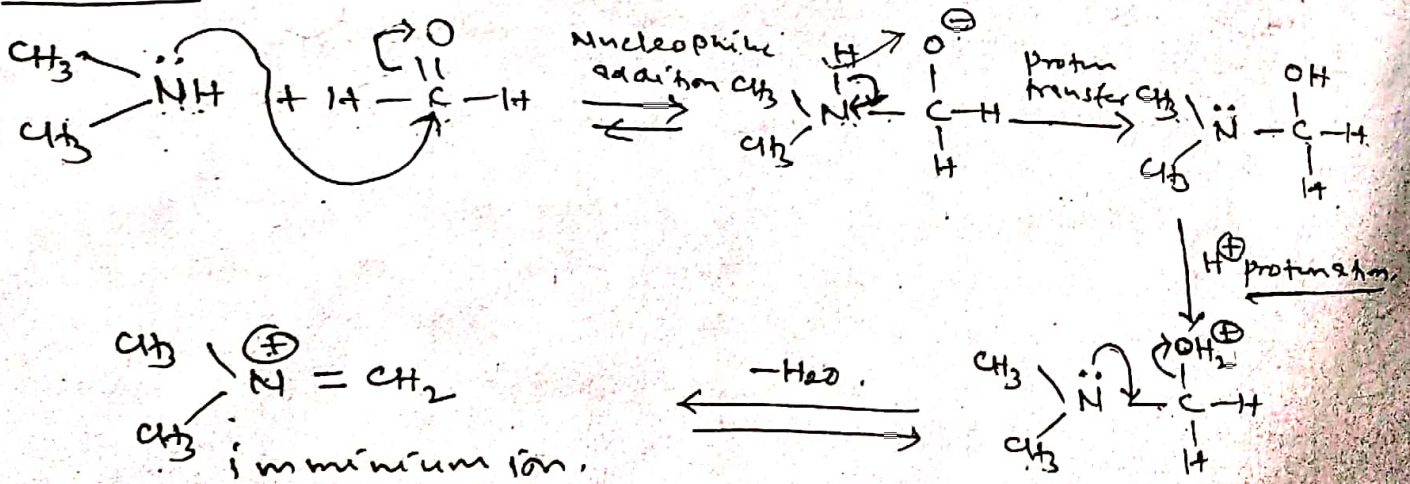 CH3 CH3 N̈H + H – C(=O) – H Nucleophilic addition ⇌ CH3 CH3 N(H) – C(O⊖)(H) – H proton transfer → CH3 CH3 N̈ – C(OH)(H) – H
H⊕ protonation.
CH3 CH3 N⊕ = CH2 –H2O. ⇌ CH3 CH3 N̈ – C(OH2⊕)(H) – H
imminium ion.